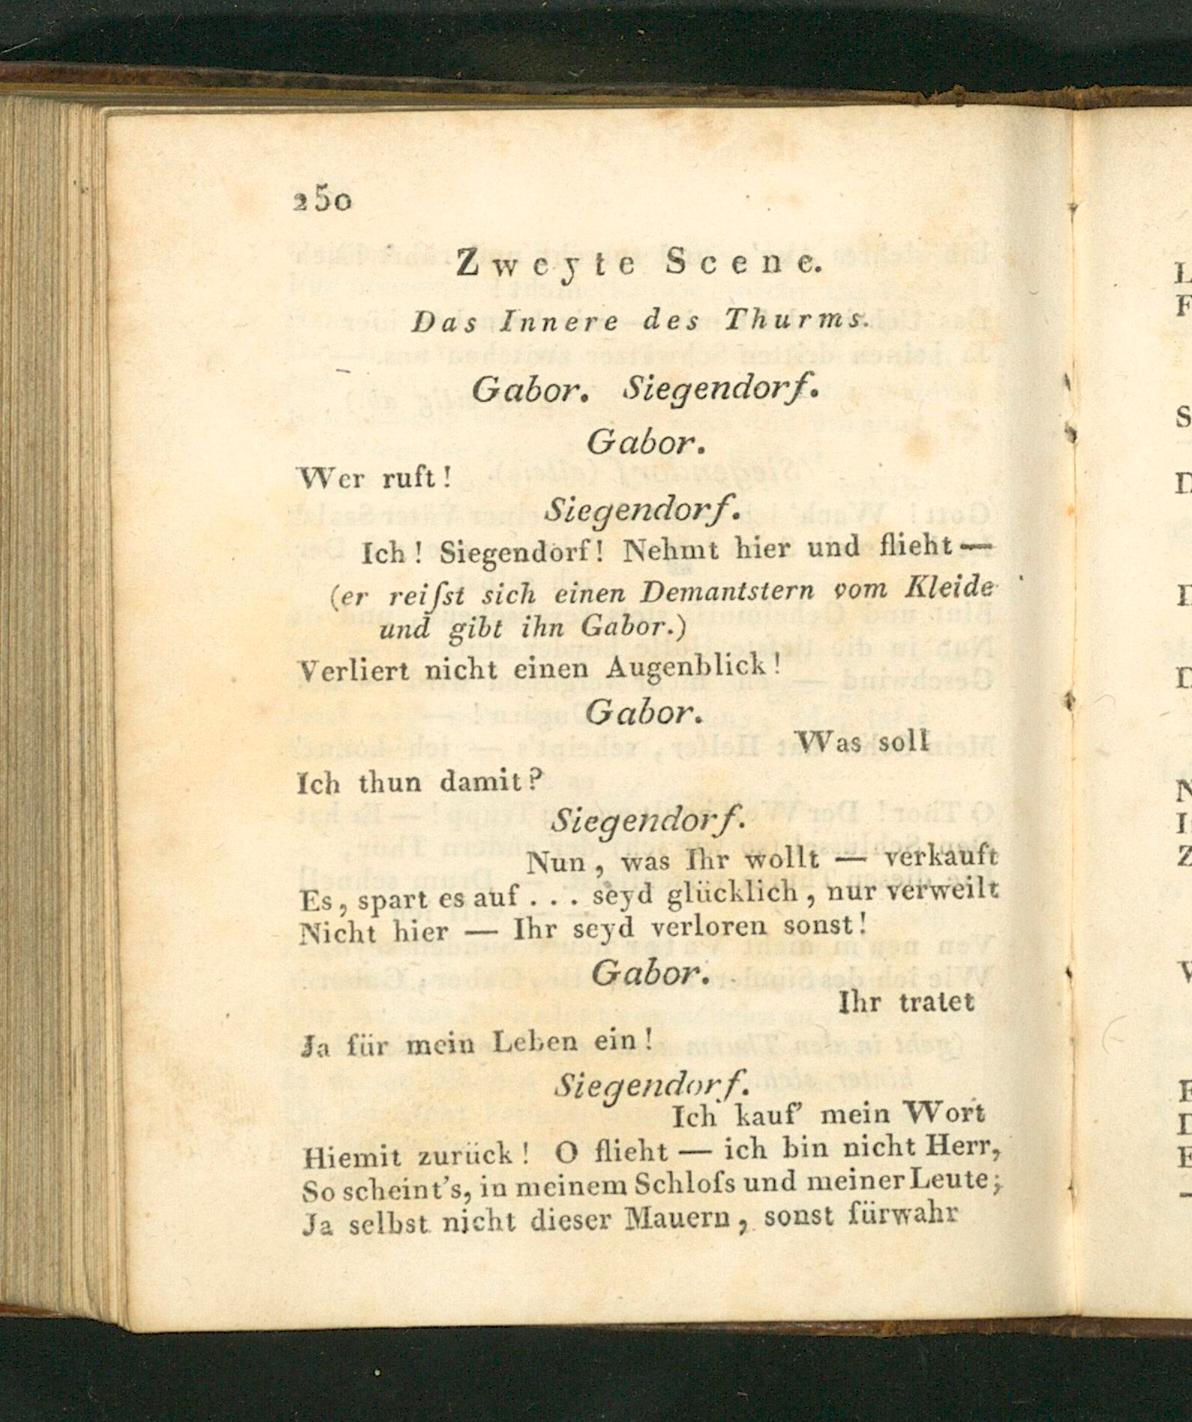 250
Zweyte Scene.
Das Innere des Thurms.
Gabor. Siegendorf.
Gabor.
Wer ruft!
Siegendorf.
Ich! Siegendorf! Nehmt hier und flieht —
(er reiſst sich einen Demantstern vom Kleide
und gibt ihn Gabor.)
Verliert nicht einen Augenblick!
Gabor.
Was soll
Ich thun damit?
Siegendorf.
Nun, was Ihr wollt — verkauft
Es, spart es auf . . . seyd glücklich, nur verweilt
Nicht hier — Ihr seyd verloren sonst!
Gabor.
Ihr tratet
Ja für mein Leben ein!
Siegendorf.
Ich kauf' mein Wort
Hiemit zurück! O flieht — ich bin nicht Herr,
So scheint's, in meinem Schloſs und meiner Leute;
Ja selbst nicht dieser Mauern, sonst fürwahr